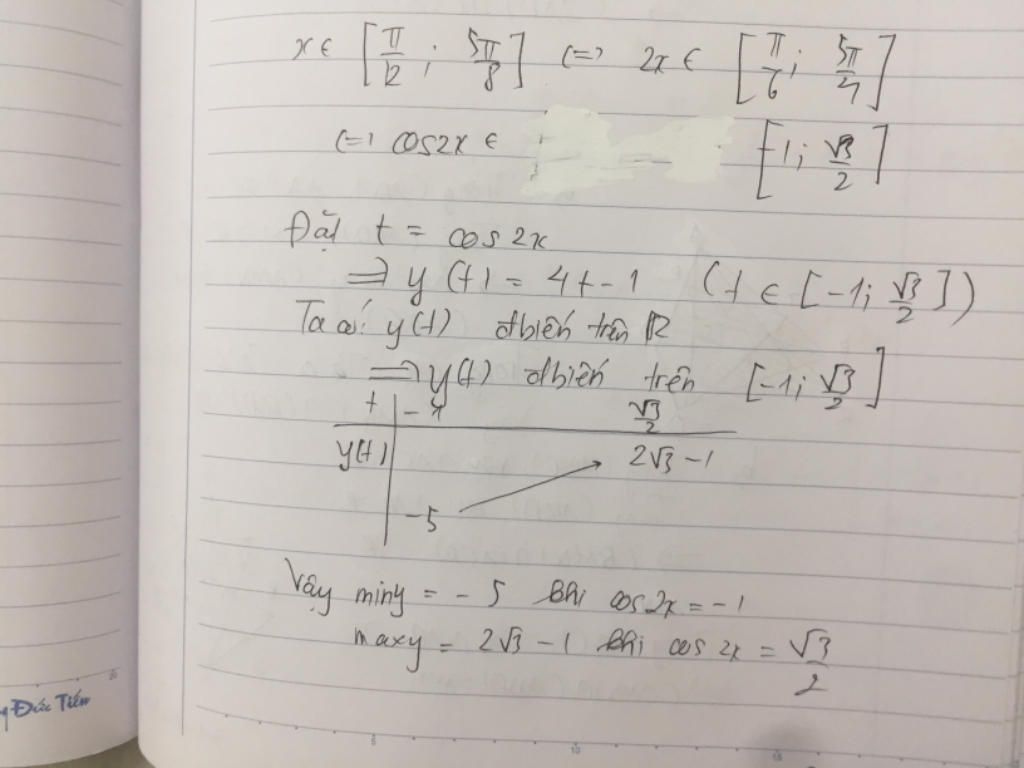 x ∈ [π/12 ; 5π/8] (=) 2x ∈ [π/6 ; 5π/4]
(=) cos2x ∈ [-1 ; √3/2]
Đặt t = cos 2x
=> y(t) = 4t - 1 (t ∈ [-1 ; √3/2])
Ta có: y(t) đbiến trên R
=> y(t) đbiến trên [-1 ; √3/2]
t -1 √3/2
y(t) 2√3 - 1
-5
Vậy miny = -5 khi cos2x = -1
maxy = 2√3 - 1 khi cos 2x = √3/2
Đức Tiến
5 10 15